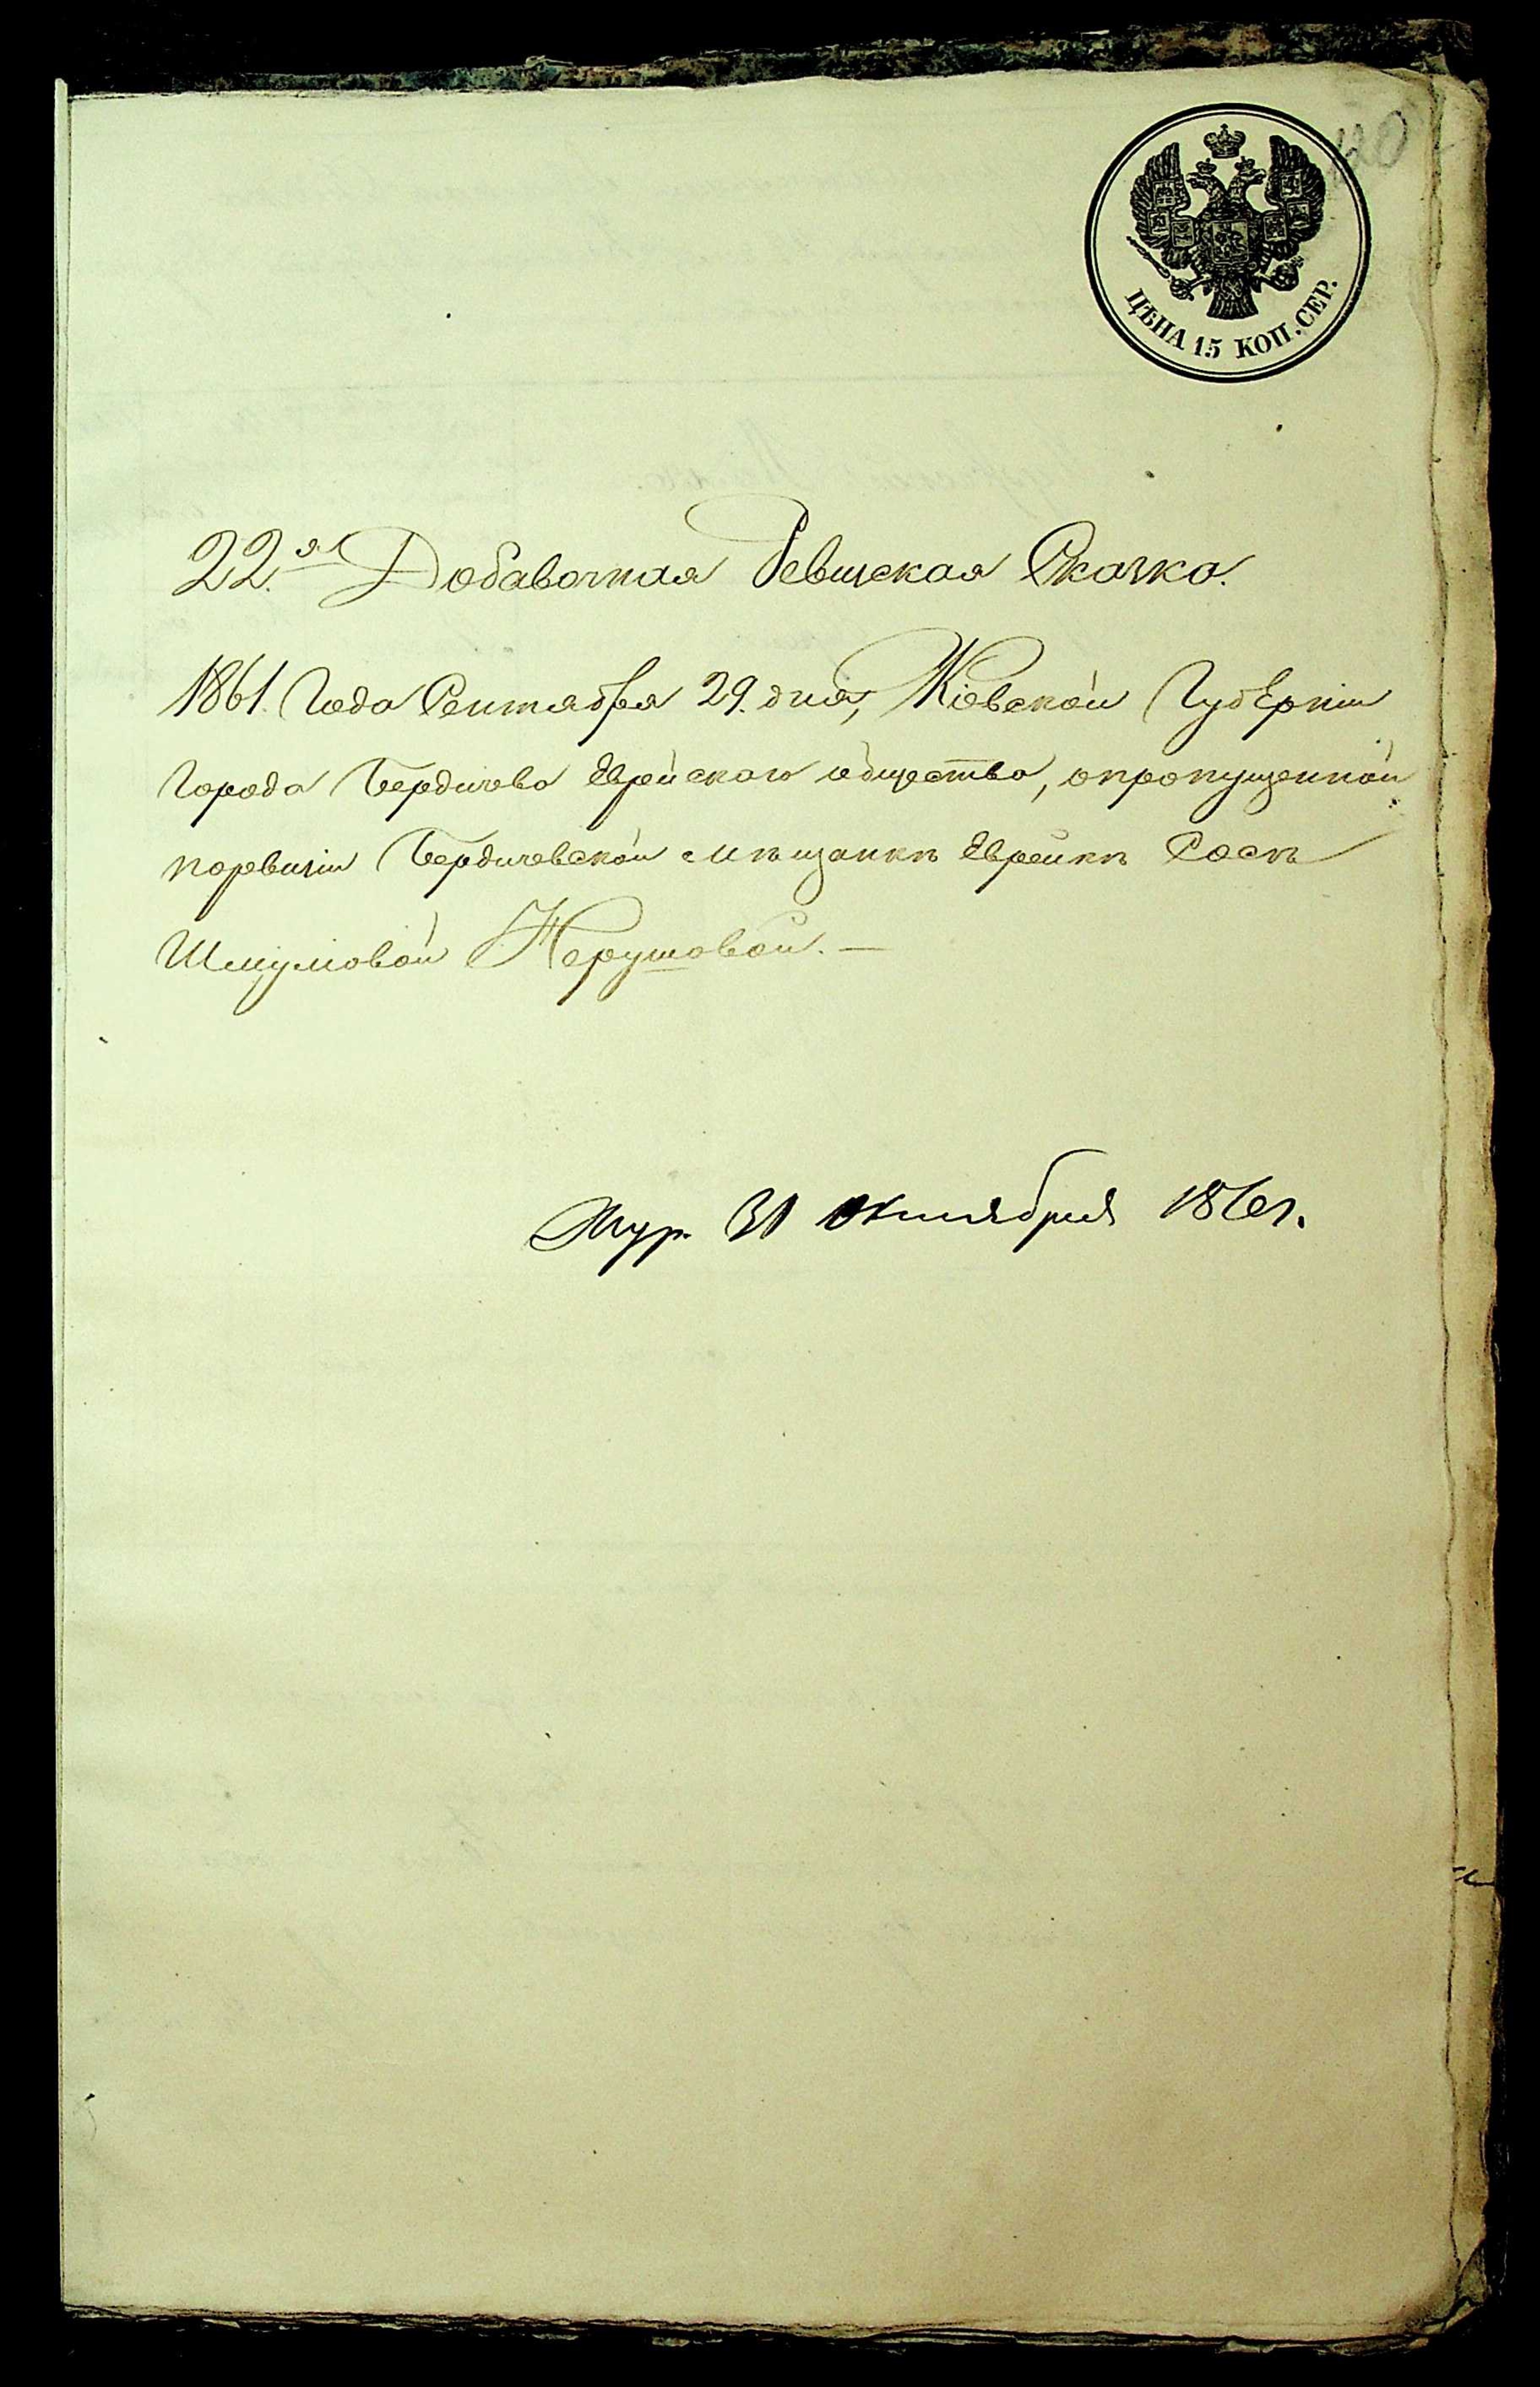 ЦѢНА 15 КОП. СЕР.
22.я Добавочная Ревизская Сказка.
1861. Года Сентября 29. дня, Кіевской Губерніи
Города Бердичева Еврейскаго общества, опропущенной
поревизіи Бердичевской мѣщанкѣ Еврейкѣ Росѣ
Шмулловой Перушовой. —
Жур. 31 октября 1861.